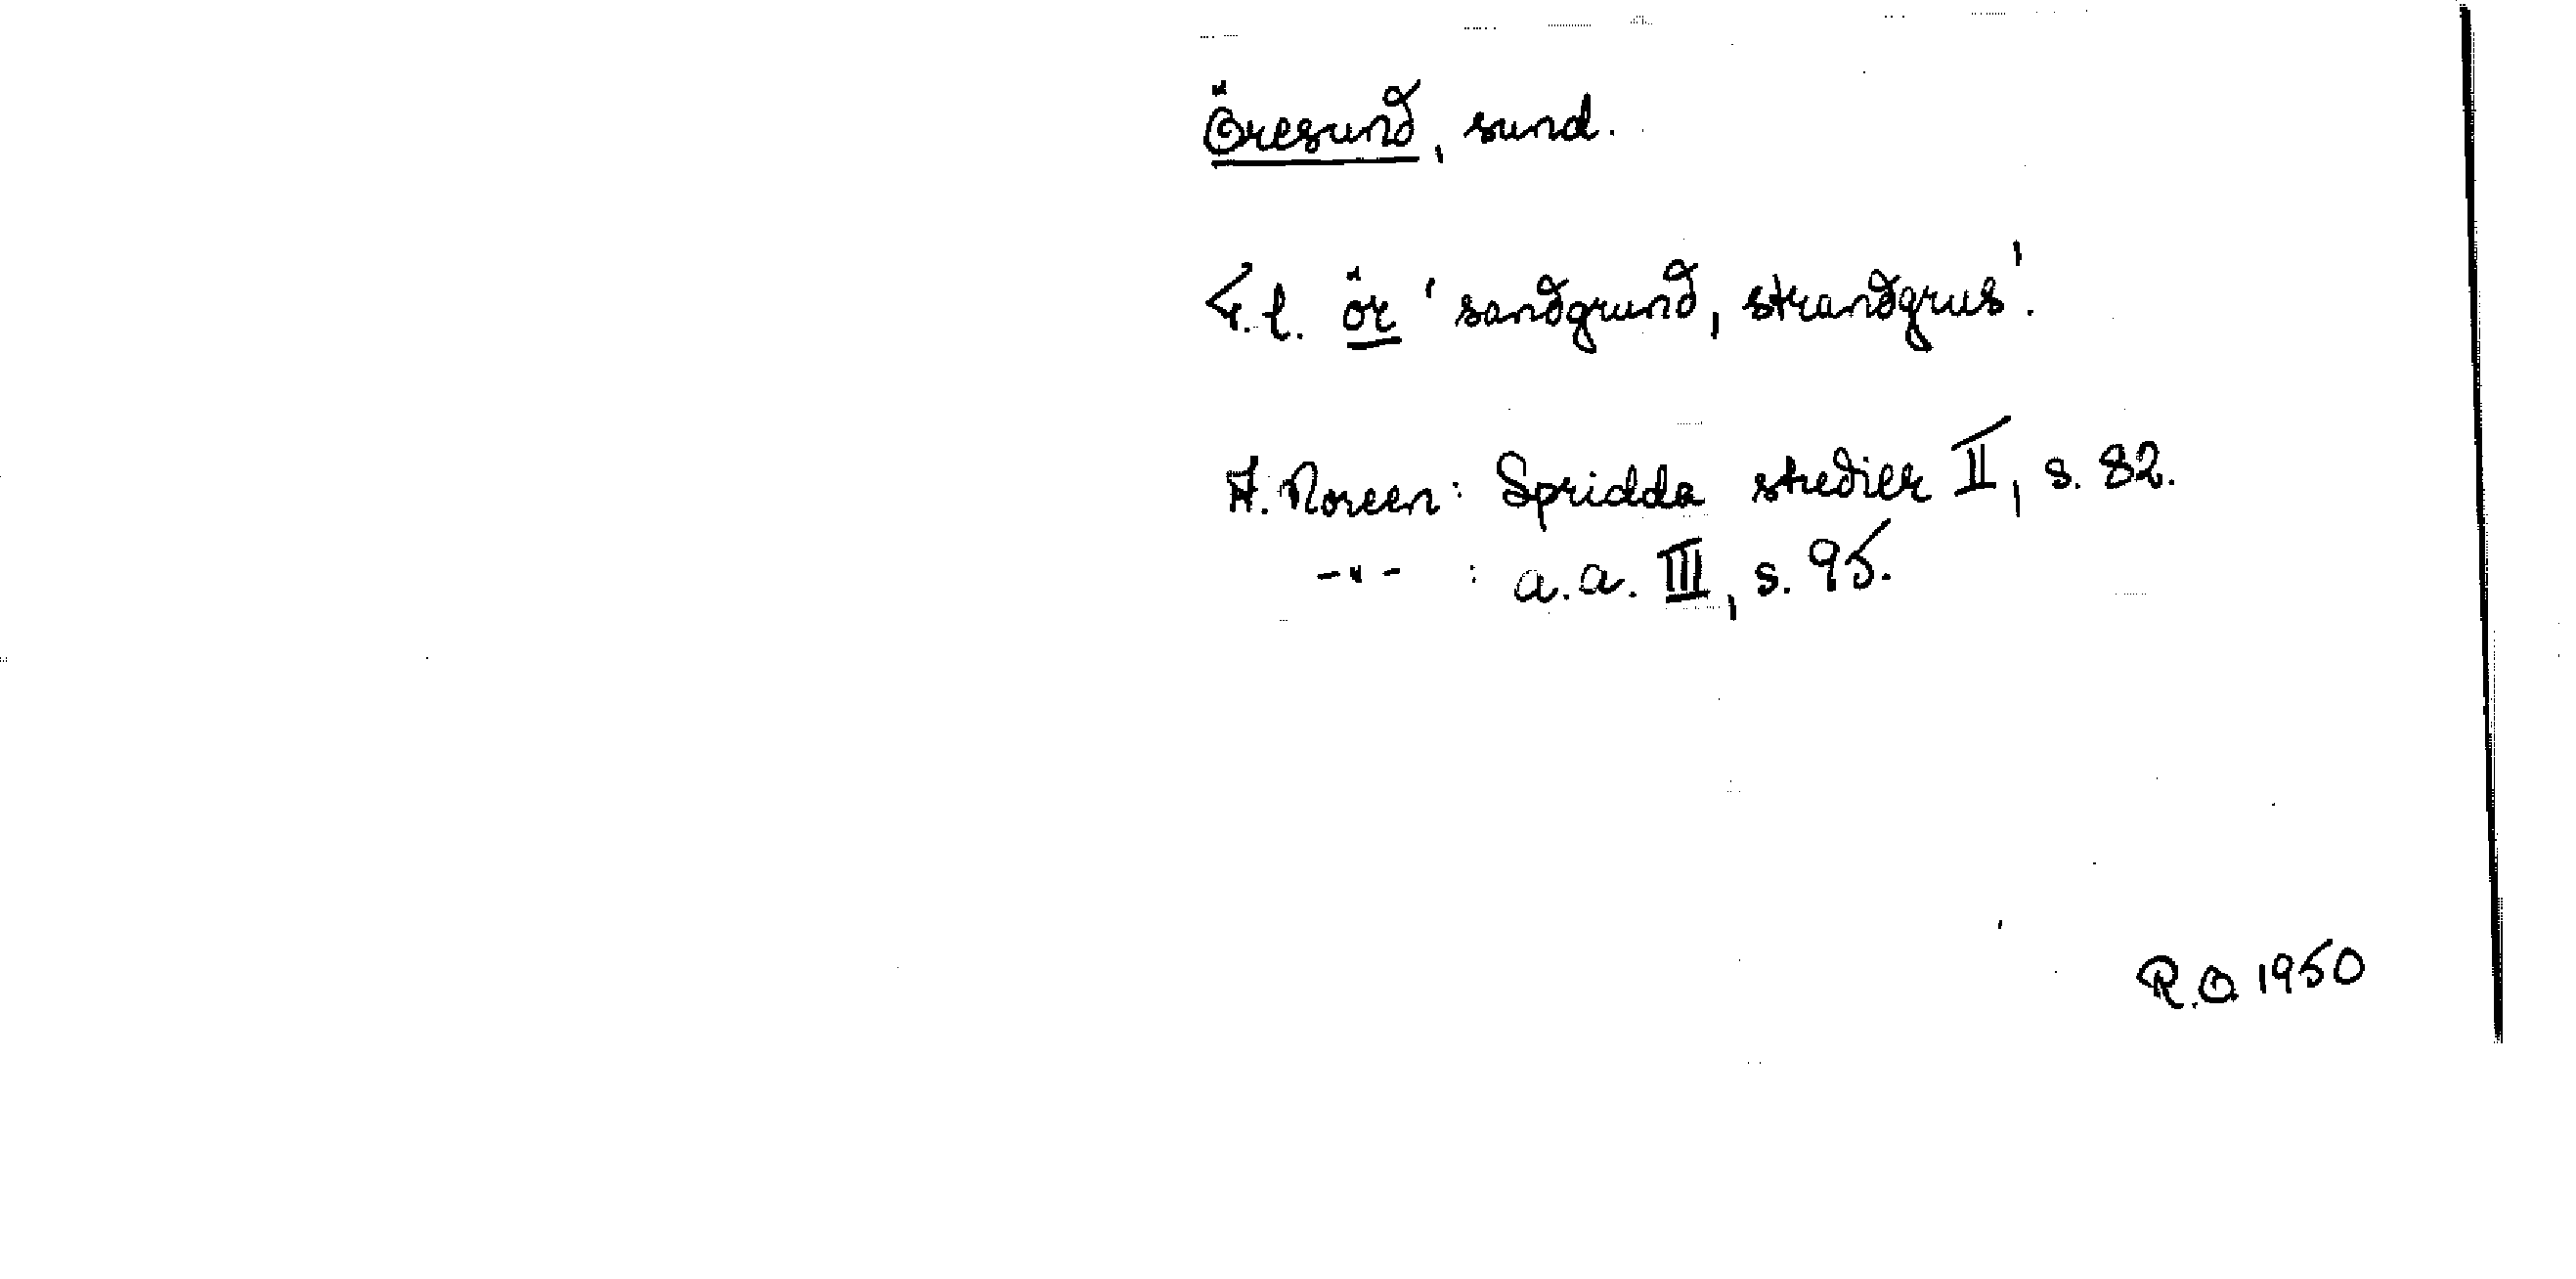 Öresund, sund.
F.l. ör 'sandgrund, strandgrus'.
A. Noreen: Spridda studier II, s. 82.
-"- : a.a. III, s. 95.
R.O 1950